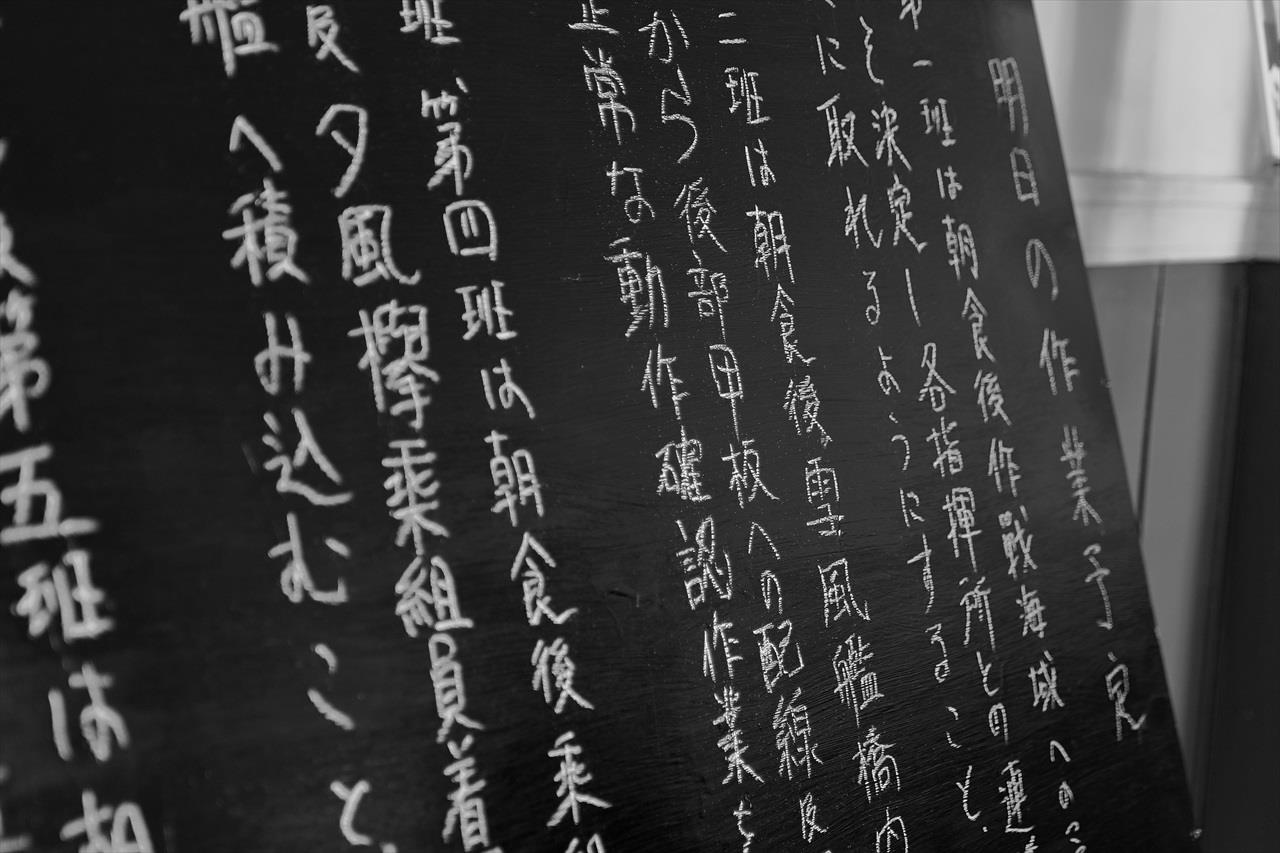 明日の作業予定
第一班は朝食後作戦海域への
を決定し各指揮所との連
に取れるようにすること。
二班は朝食後、雪風艦橋内
から後部甲板への配線及
正常な動作確認作業を
班、第四班は朝食後乗組
及夕風欅乗組員着
艦へ積み込むこと。
第五班は朝